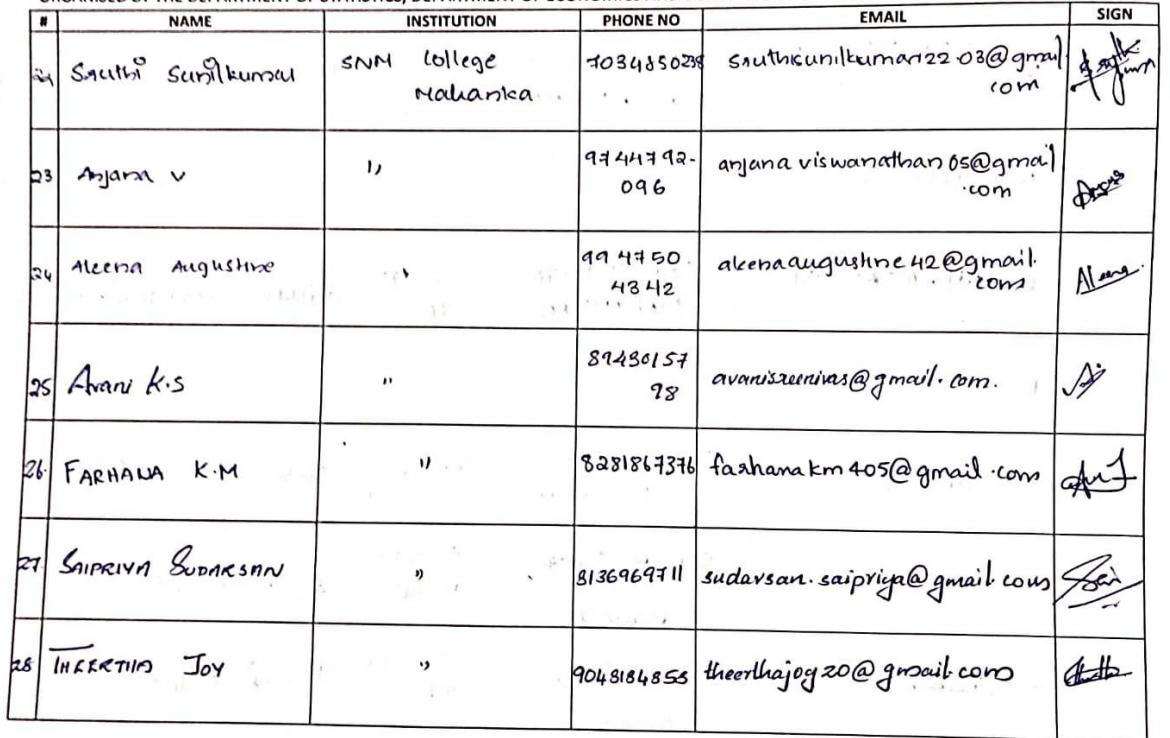 # NAME INSTITUTION PHONE NO EMAIL SIGN
Sruthi Sunilkumar SNM College 7034850238 sruthisunilkumar22.03@gmail.
Malianka com
23 Anjana V ,, 9744792- anjana viswanathan 05@gmail
096 .com
24 Aleena Augustine ,, 994750 aleenaaugustine42@gmail.
4342 com Aleena
25 Avani K.S ,, 89430157 avanisreenivas@gmail.com.
98
26. FARHANA K.M ,, 8281867376 farhanakm405@gmail.com
27 SAIPRIYA SUDARSAN ,, 8136969711 sudarsan.saipriya@gmail.com Sai
28 THEERTHA JOY ,, 9048184853 theerthajoy20@gmail.com